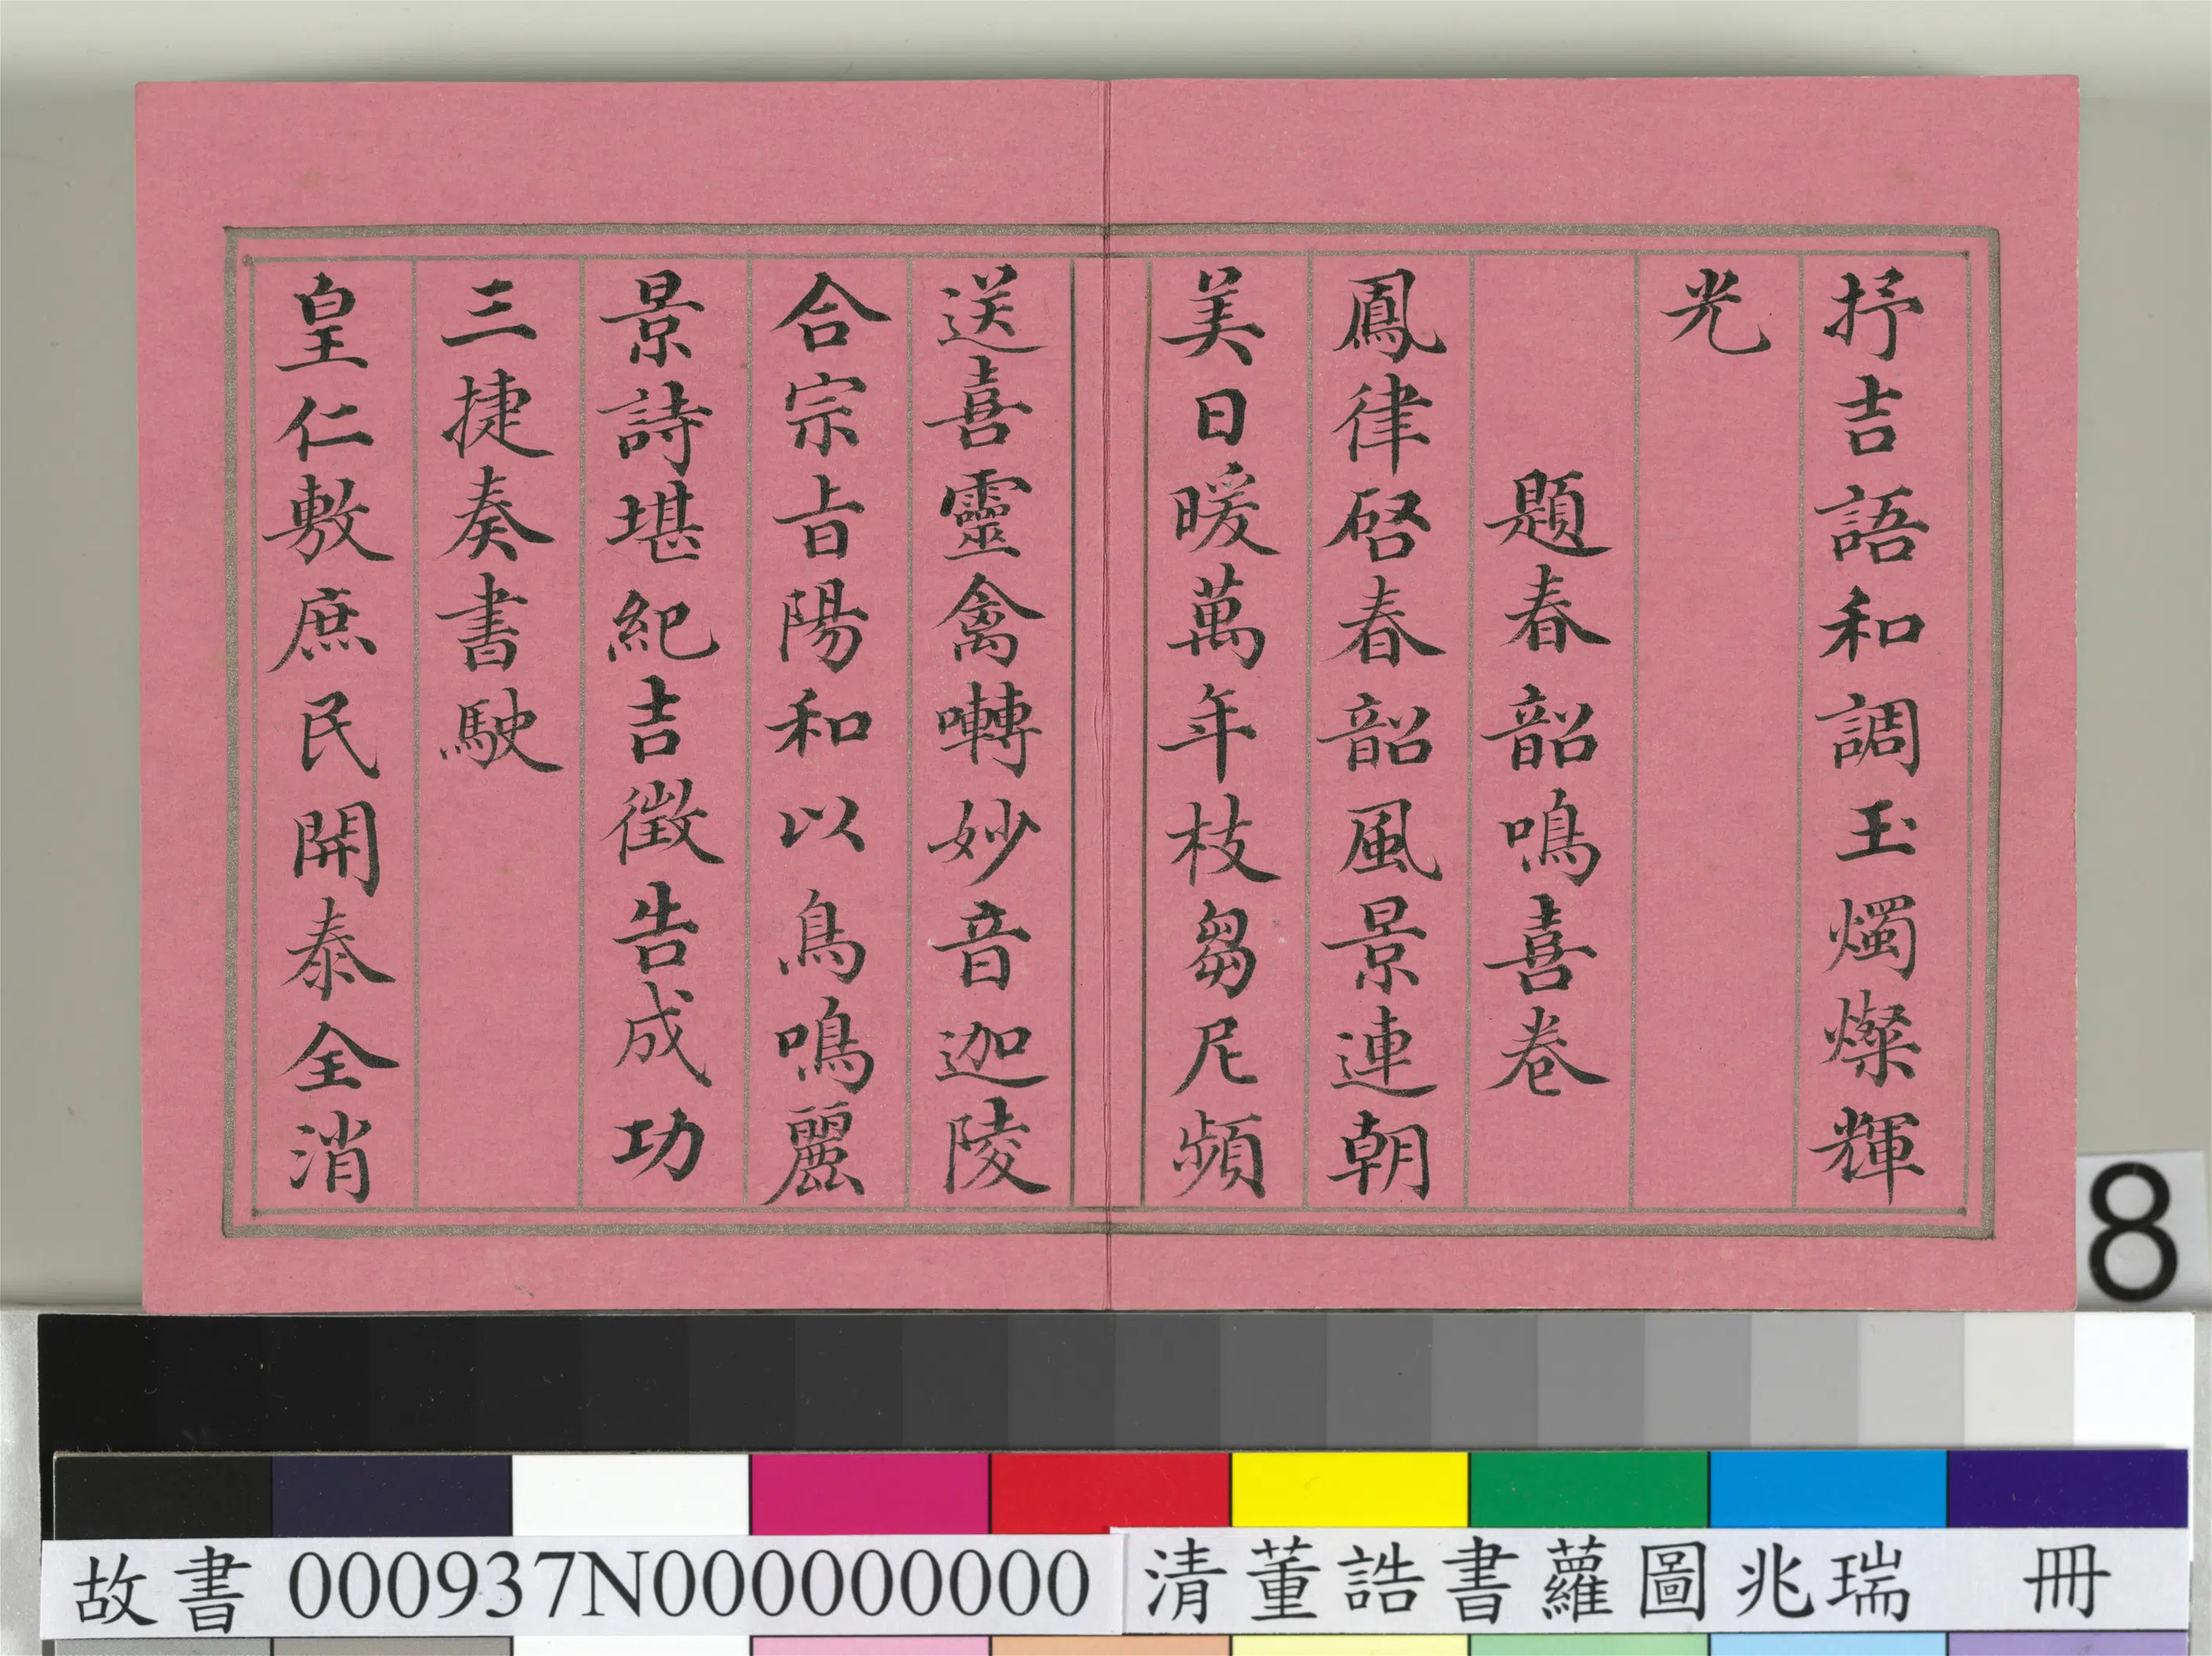 抒吉語和調玉燭燦輝
光
題春韶鳴喜卷
鳳律啓春韶風景連朝
美日暖萬年枝芻尼頻
送喜靈禽囀妙音迦陵
合宗旨陽和以鳥鳴麗
景詩堪紀吉徵告成功
三捷奏書駛
皇仁敷庶民開泰全消
8
故書 000937N000000000 清董誥書蘿圖兆瑞 冊